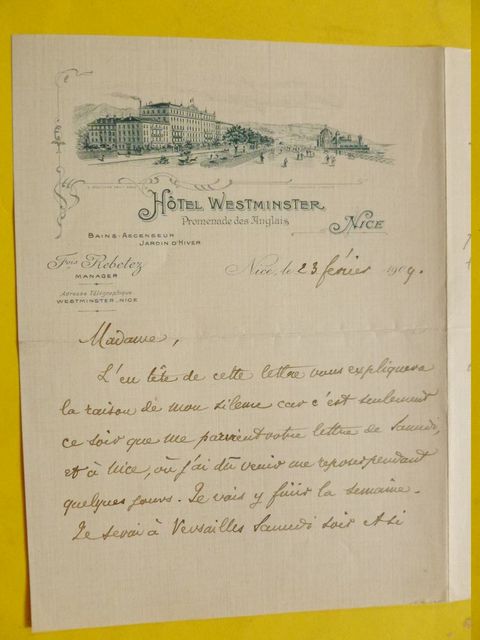 HÔTEL WESTMINSTER
Promenade des Anglais
NICE
BAINS-ASCENSEUR
JARDIN D'HIVER
Fois Rebetez
MANAGER
Adresse Télégraphique
WESTMINSTER-NICE
Nice, le 23 février 1909.
Madame,
L'en tête de cette lettre vous expliquera
la raison de mon silence car c'est seulement
ce soir que me parvient votre lettre de Samedi,
et à Nice, où j'ai dû venir me reposer pendant
quelques jours. Je vais y finir la semaine.
Je serai à Versailles Samedi soir et si